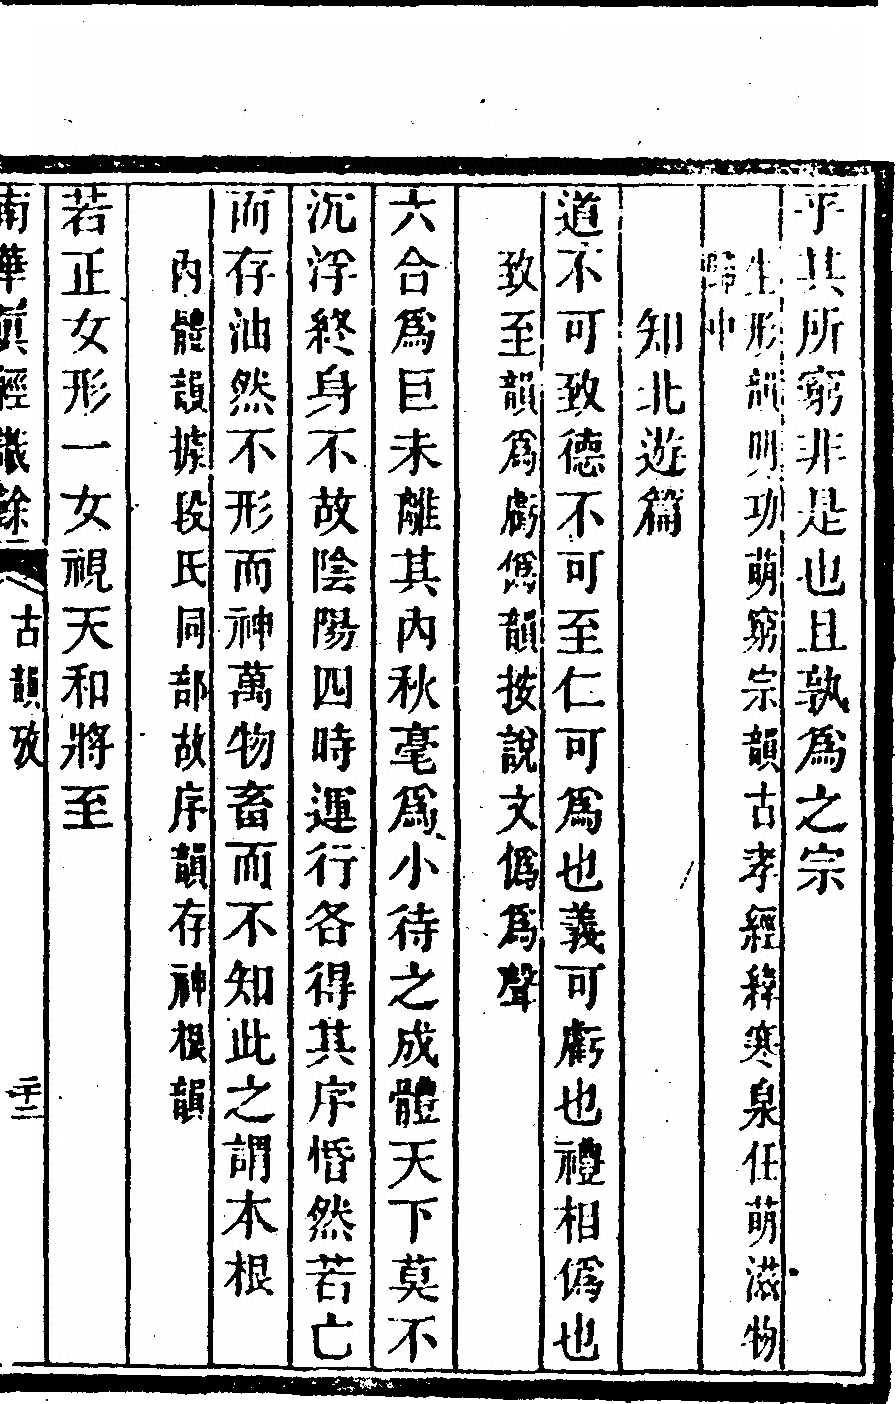 乎其所窮非是也且孰爲之宗
生形韻明功萌窮宗韻古孝經緯寒泉任萌滋物
歸中
知北遊篇
道不可致德不可至仁可爲也義可虧也禮相僞也
致至韻爲虧僞韻按說文僞爲聲
六合爲巨未離其內秋毫爲小待之成體天下莫不
沉浮終身不故陰陽四時運行各得其序惛然若亡
而存油然不形而神萬物畜而不知此之謂本根
內體韻據段氏同部故序韻存神根韻
若正女形一女視天和將至
南華眞經識餘
古韻攷
二十二